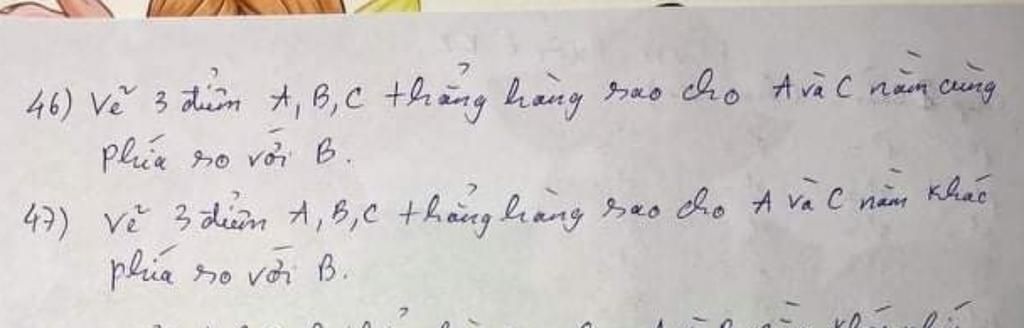 46) Vẽ 3 điểm A, B, C thẳng hàng sao cho A và C nằm cùng
phía so với B.
47) Vẽ 3 điểm A, B, C thẳng hàng sao cho A và C nằm khác
phía so với B.